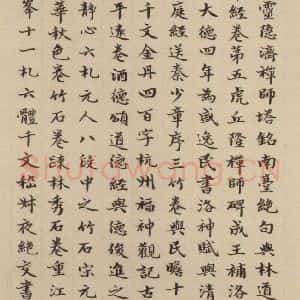 靈隱濟禪師塔銘南堂絕句與林道
經卷第五虎丘隆禪師碑成王補洛
大德四年為盛逸民書洛神賦興清
庭經送秦少章序三竹卷與民瞻十
千文金丹四百字杭州福神觀記古
平遠卷酒德頌道德經與德俊進之
靜心六札元人八段中之竹石宗元
華秋色卷竹石卷疎林秀石卷重江
峯十一札六體千文嵇叔夜絕交書